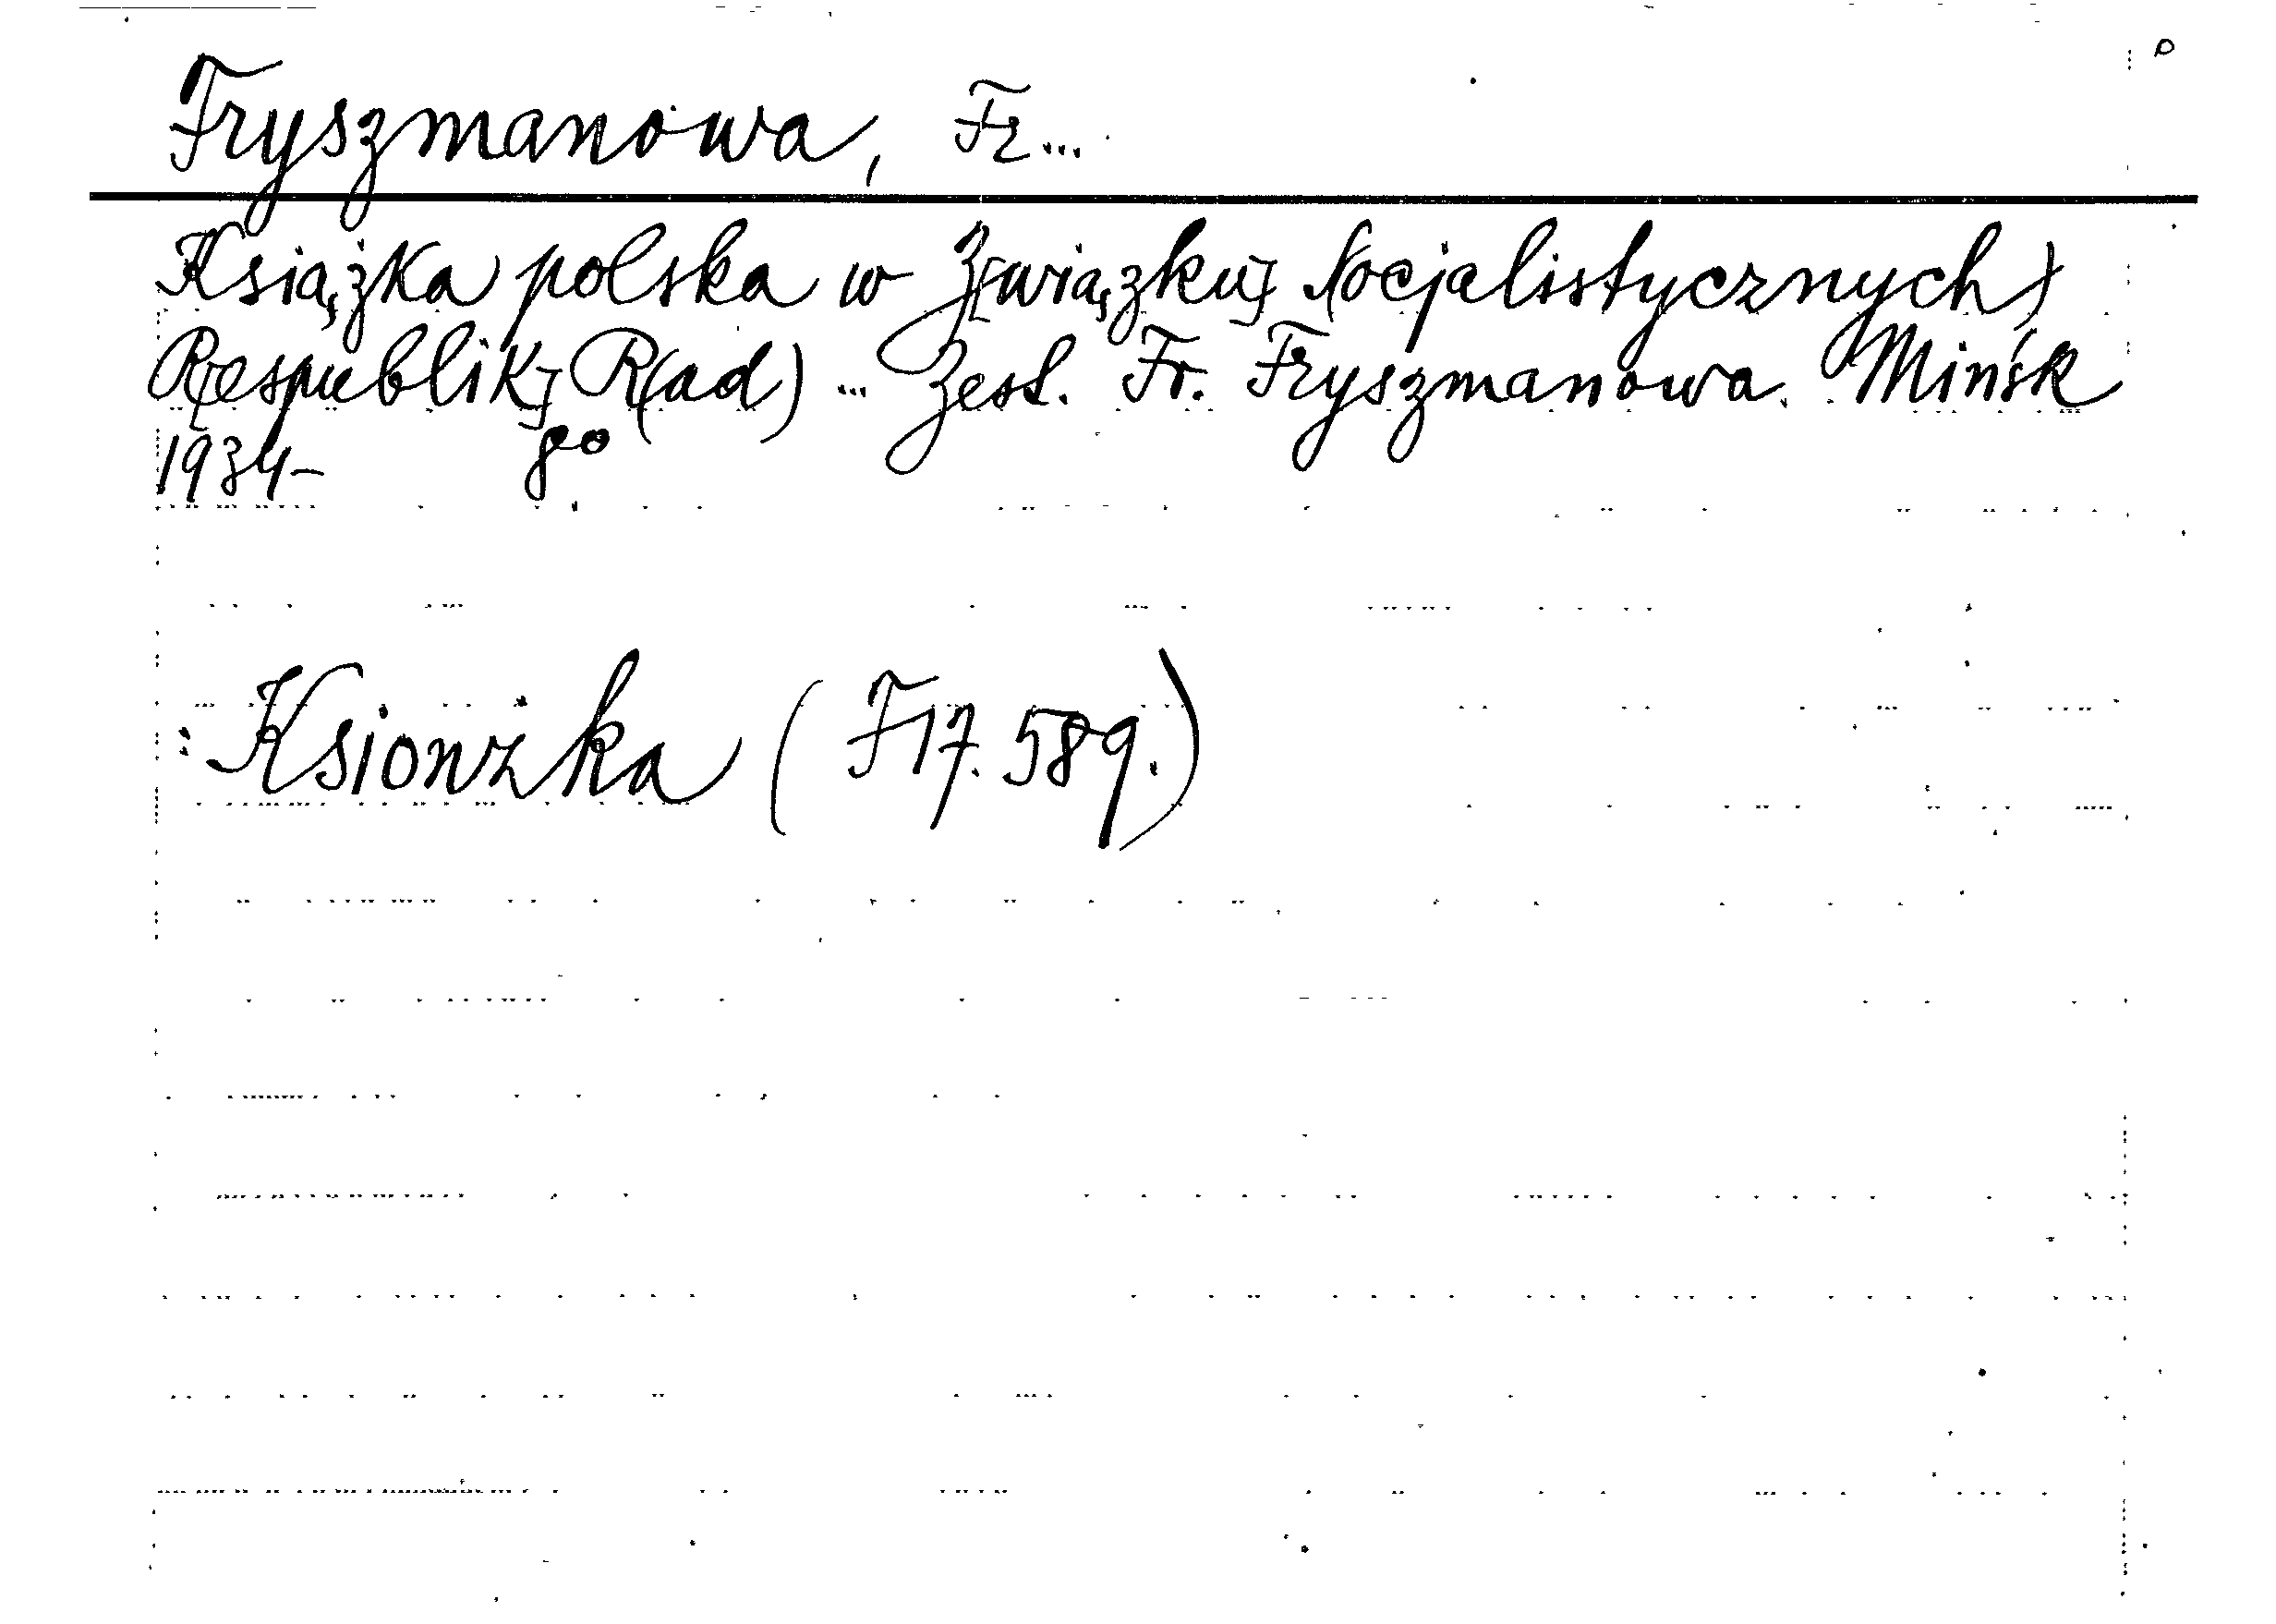 Fryszmanowa, Fr...
Książka polska w Z[wiązku] S(ocjalistycznych)
R[espublik] R(ad) ... Zest. Fr. Fryszmanowa. Mińsk
1934- 8º
: Ksionżka (F17.589.)